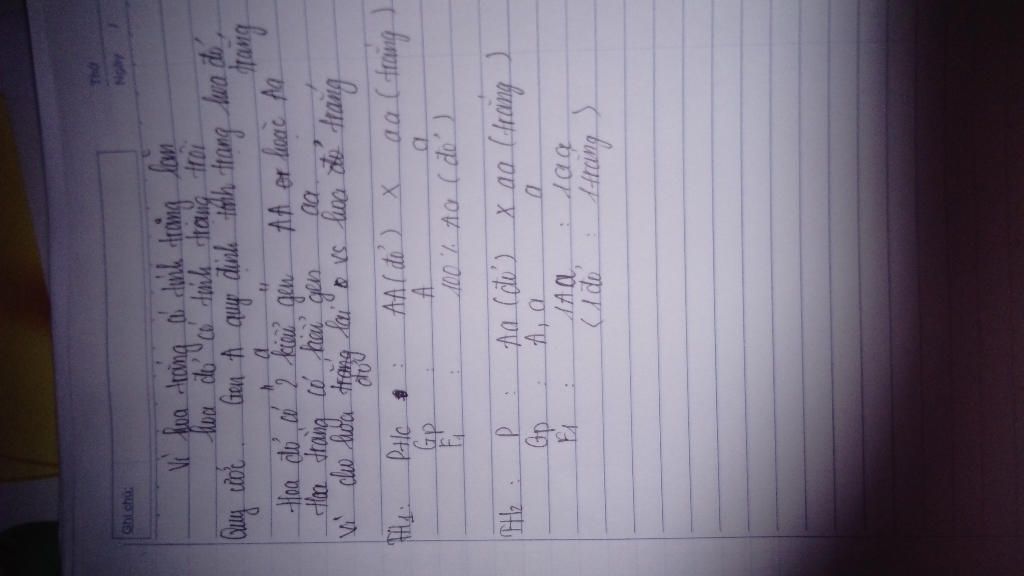 Thứ
Ngày
Ghi chú:
Vì hoa trắng có tính trạng lặn
hoa đỏ có tính trạng trội
Quy ước: Gen A quy định tính trạng hoa đỏ,
" a " trắng
Hoa đỏ có 2 kiểu gen AA hoặc Aa
Hoa trắng có kiểu gen aa
Vì cho hoa đỏ lai vs hoa trắng
TH1: Ptc : AA (đỏ) x aa (trắng)
Gp : A a
F1 : 100% Aa (đỏ)
TH2: P : Aa (đỏ) x aa (trắng)
Gp : A, a a
F1 : 1Aa : 1aa
(1 đỏ : 1 trắng)